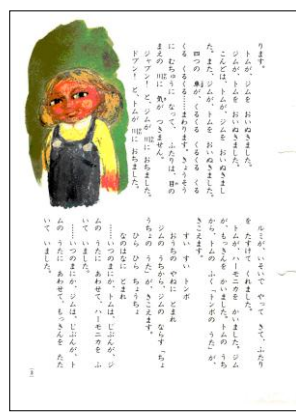 ります。
トムが、ジムを おいぬきました。
ジムが、トムを おいぬきました。
こんどは、トムが、ジムを おいぬきまし
た。また、ジムが、トムを おいぬきました。
四つの 車が、くるくる くるくる くる
くる くるくる……まわります。きょうそう
に むちゅうに なって、ふたりは、目の
まえの 川に 気が つきません。
ジャブン！ と、ジムが 川に おちました。
ドブン！ と、トムが 川に おちました。
ルミが、いそいで やって きて、ふたり
を たすけて くれました。
トムが、ハーモニカを かいました。ジム
が、もっきんを かいました。トムの うち
から、トムの ふく「トンボの うた」が、
きこえます。
すい すい トンボ
おうちの やねに とまれ
ジムの うちから、ジムの ならす「ちょ
うちょの うた」が、きこえます。
ひら ひら ちょうちょ
なのはなに とまれ
……いつのまにか、トムは、じぶんが、ジ
ムの うたに あわせて、ハーモニカを ふ
いて いました。
……いつのまにか、ジムは、じぶんが、ト
ムの うたに あわせて、もっきんを たた
いて いました。